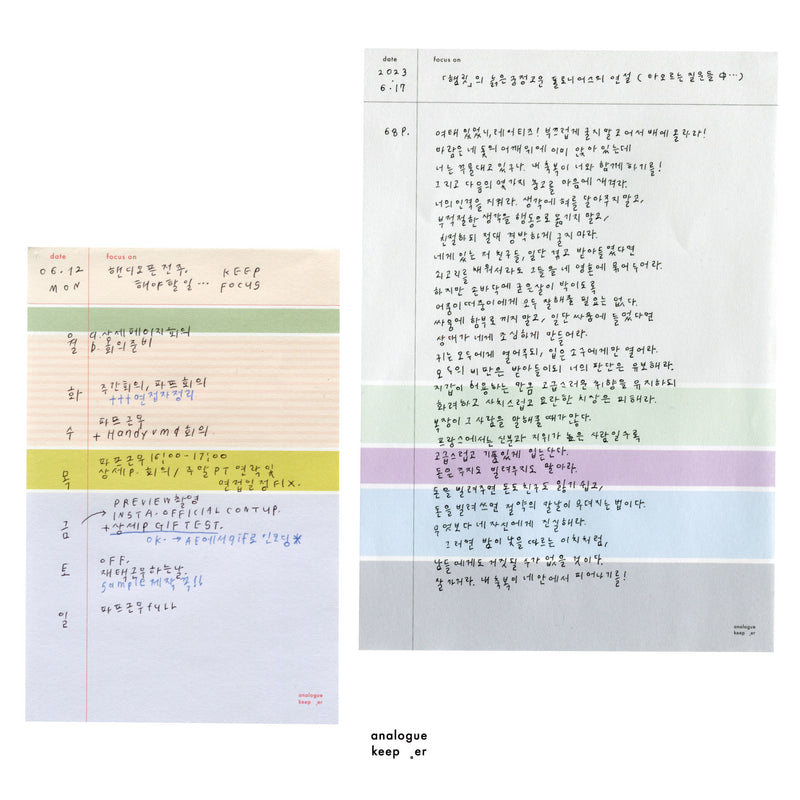 date
focus on
06.12
MON
핸디오프전주,
해야할일...
KEEP
FOCUS
월
a. 상세페이지회의
b. 회의준비
화
주간회의, 파프회의
+++면접자정리
수
파프근무
+ Handy vmd 회의.
목
파프근무 16:00-17:00
상세p. 회의, 주말 PT 연락 및
면접일정 FIX.
금
PREVIEW 촬영
INSTA. OFFICIAL CONT UP.
→ +상세P GIF TEST.
OK. → AE에서 gif로 인코딩*
토
OFF.
재택근무하는날.
sample 제작 꼭!!
일
파프근무 full
analogue
keep er
date
focus on
2023
6.17
「햄릿」의 늙은 궁정고문 폴로니어스의 연설 (타오르는 질문들 中...)
68P.
여태 있었니, 레어티즈! 부끄럽게 굴지 말고 어서 배에 올라라!
바람은 네 돛의 어깨위에 이미 앉아 있는데
너는 꾸물대고 있구나. 내 축복이 너와 함께 하기를!
그리고 다음의 몇가지 충고를 마음에 새겨라.
너의 인격을 지켜라. 생각에 혀를 달아주지 말고,
부적절한 생각을 행동으로 옮기지 말고,
친절하되 절대 경박하게 굴지 마라.
네게 있는 저 친구들, 일단 겪고 받아들였다면
쇠고리를 채워서라도 그들을 네 영혼에 묶어두어라.
하지만 손바닥에 굳은살이 박이도록
어중이떠중이에게 모두 잘해줄 필요는 없다.
싸움에 함부로 끼지 말고, 일단 싸움에 들었다면
상대가 네게 조심하게 만들어라.
귀는 모두에게 열어두되, 입은 소수에게만 열어라.
모두의 비판은 받아들이되 너의 판단은 유보해라.
지갑이 허용하는 만큼 고급스러운 취향을 유지하되
화려하고 사치스럽고 요란한 치장은 피해라.
복장이 그 사람을 말해줄 때가 많다.
프랑스에서는 신분과 지위가 높은 사람일수록
고급스럽고 기품있게 입는단다.
돈은 주지도 빌려주지도 말아라.
돈을 빌려주면 돈도 친구도 잃기 쉽고,
돈을 빌려 쓰면 절약의 칼날이 무뎌지는 법이다.
무엇보다 네 자신에게 진실해라.
그러면 밤이 낮을 따르는 이치처럼,
남들에게도 거짓될 수가 없을 것이다.
잘 가거라. 내 축복이 네 안에서 피어나기를!
analogue
keep er
analogue
keep er